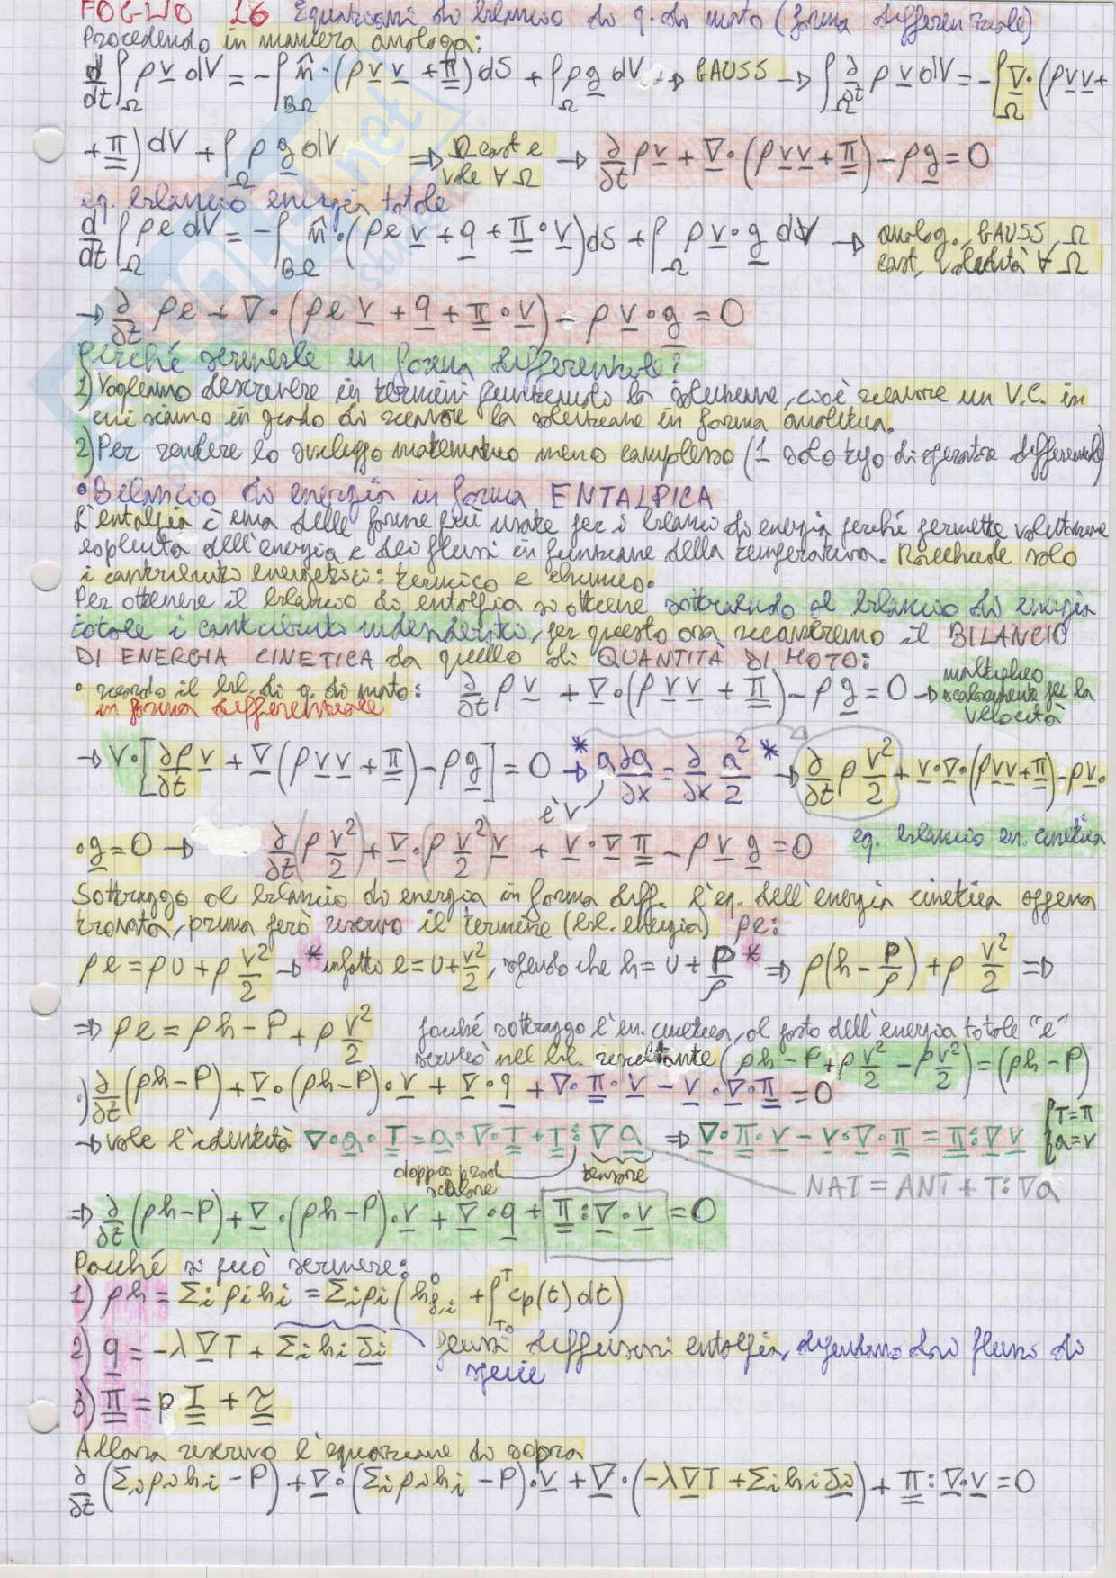 FOGLIO 16 Equazioni di bilancio di q. di moto (forma differenziale)
Procedendo in maniera analoga:
d/dt ∫_Ω ρ v dV = -∫_∂Ω n̂·(ρ v v + Π) dS + ∫_Ω ρ g dV → GAUSS → ∫_Ω ∂/∂t ρ v dV = -∫_Ω ∇·(ρ v v +
+ Π) dV + ∫_Ω ρ g dV ⇒ Ω cost e vale ∀ Ω → ∂/∂t ρ v + ∇·(ρ v v + Π) - ρ g = 0
eq. bilancio energia totale
d/dt ∫_Ω ρ e dV = -∫_∂Ω n̂·(ρ e v + q + Π·v) dS + ∫_Ω ρ v·g dV → analog. GAUSS, Ω cost, validità ∀ Ω
→ ∂/∂t ρ e + ∇·(ρ e v + q + Π·v) - ρ v·g = 0
Perché scriverle in forma differenziale?
1) Vogliamo descrivere in termini puntuali la soluzione, cioè trovare un V.C. in
cui siamo in grado di trovare la soluzione in forma analitica.
2) Per rendere lo sviluppo matematico meno complesso (1 solo tipo di operatore differenziale)
• Bilancio di energia in forma ENTALPICA
L'entalpia è una delle forme più usate per i bilanci di energia perché permette valutazione
esplicita dell'energia e dei flussi in funzione della temperatura. Racchiude solo
i contributi energetici: termico e chimico.
Per ottenere il bilancio di entalpia si ottiene sottraendo al bilancio di energia
totale i contributi indesiderati, per questo ora ricaviamo il BILANCIO
DI ENERGIA CINETICA da quello di QUANTITÀ DI MOTO:
• riscrivo il bil. di q. di moto: ∂/∂t ρ v + ∇·(ρ v v + Π) - ρ g = 0 → moltiplico scalarmente per la velocità
in forma differenziale
→ v·[∂ρ v/∂t + ∇(ρ v v + Π) - ρ g] = 0 * → a ∂a/∂x = ∂/∂x a²/2 * → ∂/∂t ρ v²/2 + v·∇·(ρ v v + Π) - ρ v·
è v
· g = 0 → ∂/∂t (ρ v²/2) + ∇·(ρ v²/2) v + v·∇ Π - ρ v g = 0 eq. bilancio en. cinetica
Sottraggo al bilancio di energia in forma diff. l'eq. dell'energia cinetica appena
trovata, prima però riscrivo il termine (bil. energia) ρe:
ρe = ρu + ρ v²/2 → * infatti e = u + v²/2, sapendo che h = u + P/ρ * ⇒ ρ(h - P/ρ) + ρ v²/2 ⇒
⇒ ρe = ρh - P + ρ v²/2 poiché sottraggo l'en. cinetica, al posto dell'energia totale "e"
scriverò nel bil. risultante (ρh - P + ρ v²/2 - ρ v²/2) = (ρh - P)
·) ∂/∂t (ρh - P) + ∇·(ρh - P)·v + ∇·q + ∇·Π·v - v·∇·Π = 0
→ vale l'identità ∇·a·T = a·∇·T + T:∇a ⇒ ∇·Π·v - v·∇·Π = Π:∇v {T = Π a = v
doppio prod. scalare tensore NAT = ANT + T:∇a
⇒ ∂/∂t (ρh - P) + ∇·(ρh - P)·v + ∇·q + Π:∇·v = 0
Poiché si può scrivere:
1) ρh = Σi ρi hi = Σi ρi (h°f,i + ∫_T₀^T cp(t) dt)
2) q = -λ ∇T + Σi hi Ji flussi diffusivi entalpia, dipendono dal flusso di
specie
3) Π = p I + τ
Allora riscrivo l'equazione di sopra
∂/∂t (Σi ρi hi - P) + ∇·(Σi ρi hi - P)·v + ∇·(-λ ∇T + Σi hi Ji) + Π:∇·v = 0